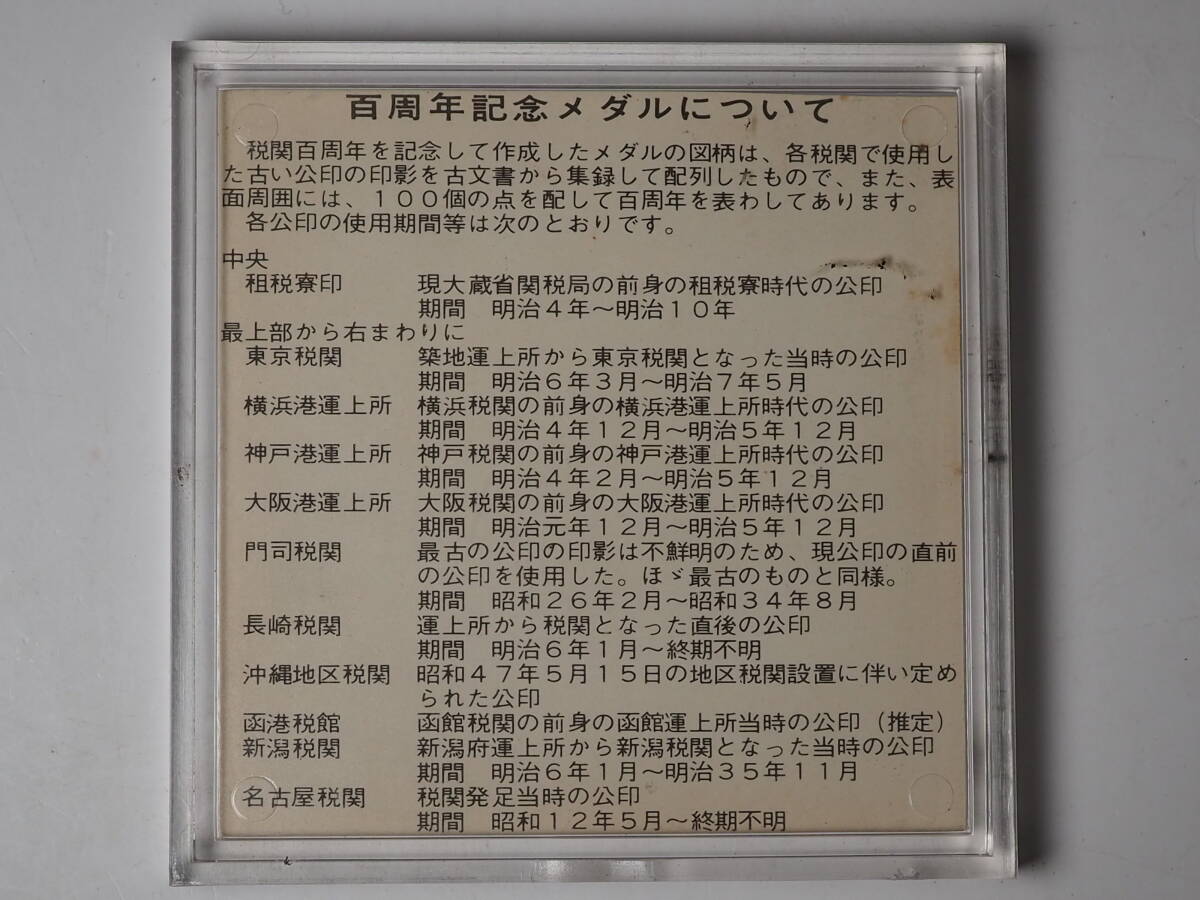 百周年記念メダルについて
税関百周年を記念して作成したメダルの図柄は、各税関で使用し
た古い公印の印影を古文書から集録して配列したもので、また、表
面周囲には、100個の点を配して百周年を表わしてあります。
各公印の使用期間等は次のとおりです。
中央
租税寮印 現大蔵省関税局の前身の租税寮時代の公印
期間 明治4年〜明治10年
最上部から右まわりに
東京税関 築地運上所から東京税関となった当時の公印
期間 明治6年3月〜明治7年5月
横浜港運上所 横浜税関の前身の横浜港運上所時代の公印
期間 明治4年12月〜明治5年12月
神戸港運上所 神戸税関の前身の神戸港運上所時代の公印
期間 明治4年2月〜明治5年12月
大阪港運上所 大阪税関の前身の大阪港運上所時代の公印
期間 明治元年12月〜明治5年12月
門司税関 最古の公印の印影は不鮮明のため、現公印の直前
の公印を使用した。ほゞ最古のものと同様。
期間 昭和26年2月〜昭和34年8月
長崎税関 運上所から税関となった直後の公印
期間 明治6年1月〜終期不明
沖縄地区税関 昭和47年5月15日の地区税関設置に伴い定め
られた公印
函港税館 函館税関の前身の函館運上所当時の公印(推定)
新潟税関 新潟府運上所から新潟税関となった当時の公印
期間 明治6年1月〜明治35年11月
名古屋税関 税関発足当時の公印
期間 昭和12年5月〜終期不明